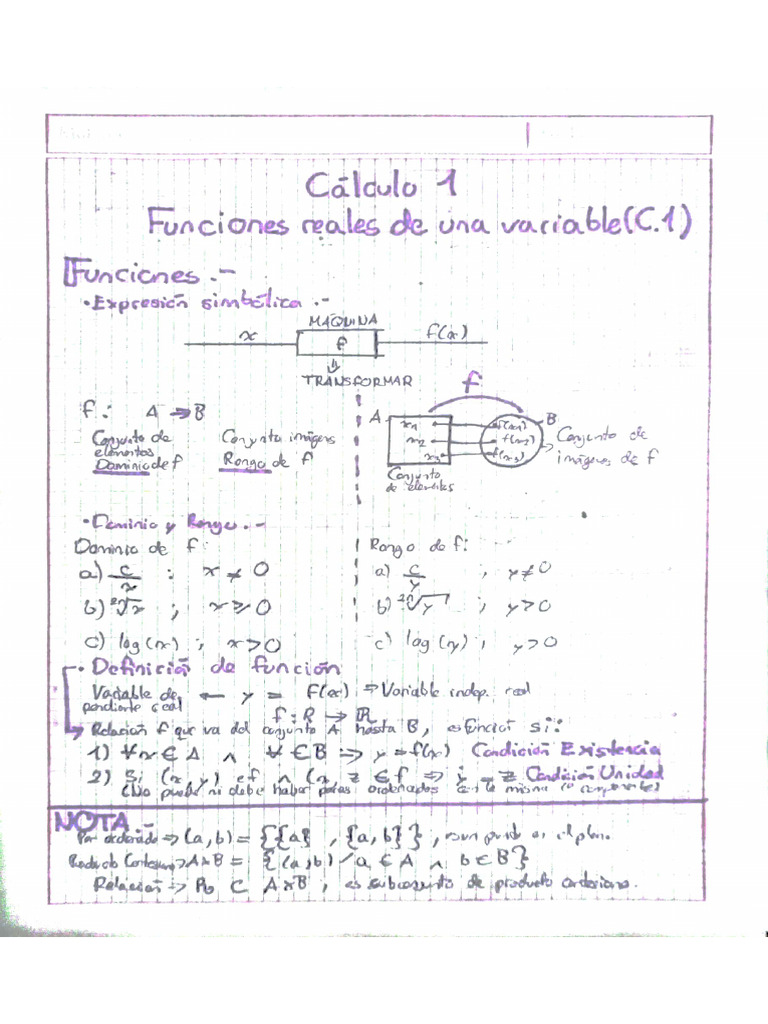 Cálculo 1
Funciones reales de una variable (C.1)
Funciones.-
• Expresión simbólica.-
MÁQUINA
x f f(x)
TRANSFORMAR
f: A → B
Conjunto de elementos
Dominio de f
Conjunto imágens
Rongo de f
f
A B
x1 f(x1)
x2 f(x2)
x3 f(x3)
Conjunto de elementos
Conjunto de imágenes de f
• Dominio y Rango.-
Dominio de f:
a) c/x ; x ≠ 0
b) ²√x ; x ≥ 0
c) log(x) ; x > 0
Rango de f:
a) c/y ; y ≠ 0
b) √y ; y > 0
c) log(y) ; y > 0
• Definición de función
Variable dependiente real ← y = f(x) ⇒ Variable indep. real
f: R → R
Relación f que va del conjunto A hasta B, es función si:
1) ∀x ∈ A ∧ ∀ ∈ B ⇒ y = f(x) Condición Existencia
2) Si (x, y) ef ∧ (x, z ∈ f ⇒ y = z Condición Unidad
(No puede ni debe haber pares ordenados con la misma 1º componente)
NOTA.-
Par ordenado ⇒ (a,b) = {{a} , {a,b}}, es un punto en el plano.
Producto Cartesiano ⇒ A×B = {(a,b) / a ∈ A ∧ b ∈ B}
Relación ⇒ ⊂ A×B, es subconjunto de producto cartesiano.